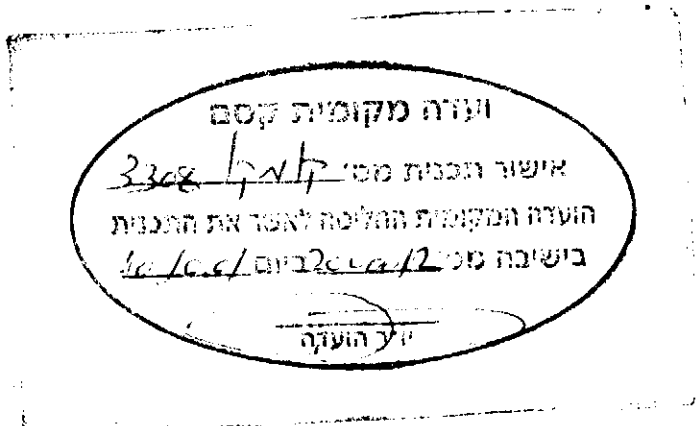 ועדה מקומית קסם
אישור תכנית מס' ק/מק/ 3308
הועדה המקומית החליטה לאשר את התכנית
בישיבה מס' ביום
יו"ר הועדה